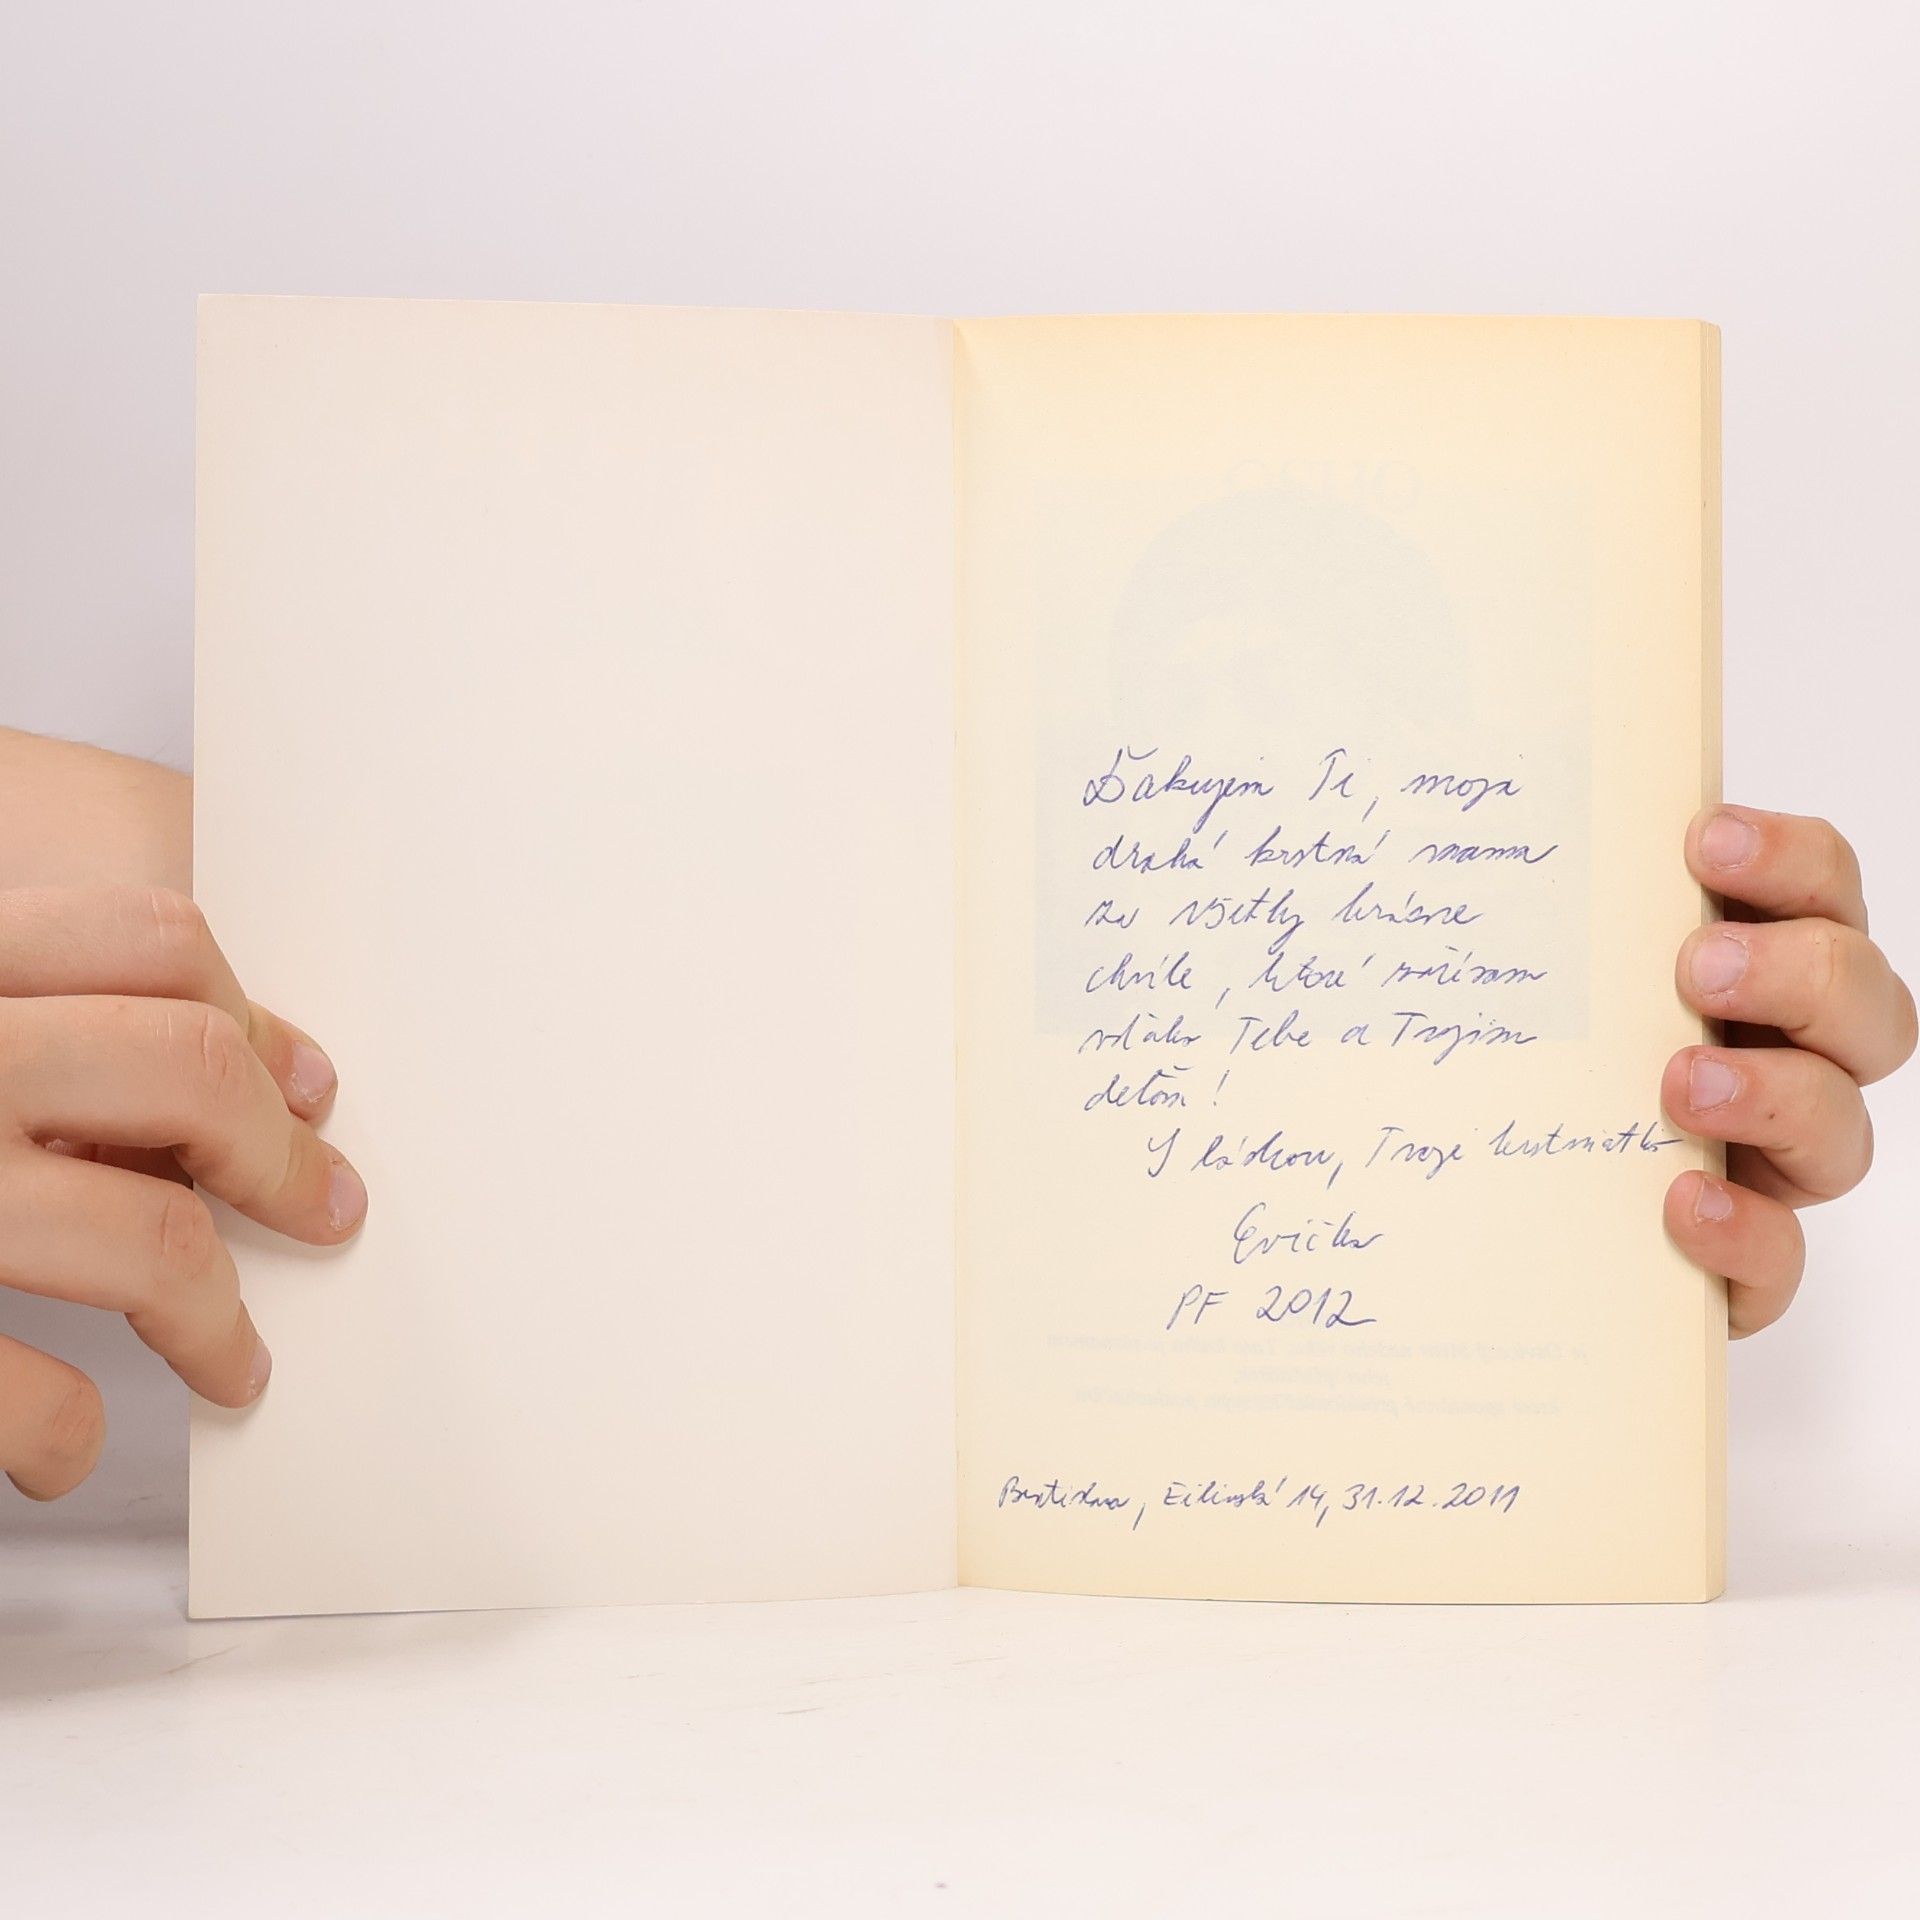 Ďakujem Ti, moja
drahá krstná mama
za všetky krásne
chvíle, ktoré zažívam
vďaka Tebe a Tvojim
deťom!
S láskou, Tvoje krstniatko
Evička
PF 2012
Bratislava, Žilinská 14, 31.12.2011